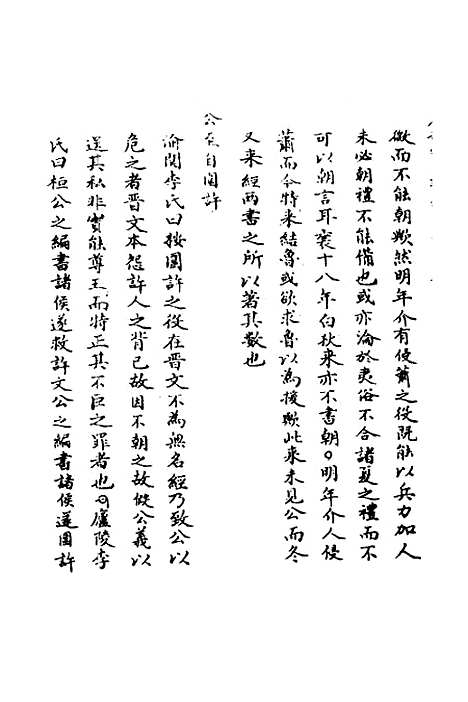 微而不能朝歟然明年介有侵蕭之役既能以兵力加人
未必朝禮不能備也或亦淪於夷俗不合諸夏之禮而不
可以朝言耳襄十八年白狄来亦不書朝〇明年介人侵
蕭而今特来結魯或欲求魯以為援歟此来未見公而冬
又来經两書之所以著其數也
公至自圍許
渝関李氏曰按圍許之役在晋文不為無名經乃致公以
危之者晋文本怨許人之背已故因不朝之故假公義以
逞其私非實能尊王而特正其不臣之罪者也〇廬陵李
氏曰桓公之編書諸侯遂救許文公之編書諸侯遂圍許